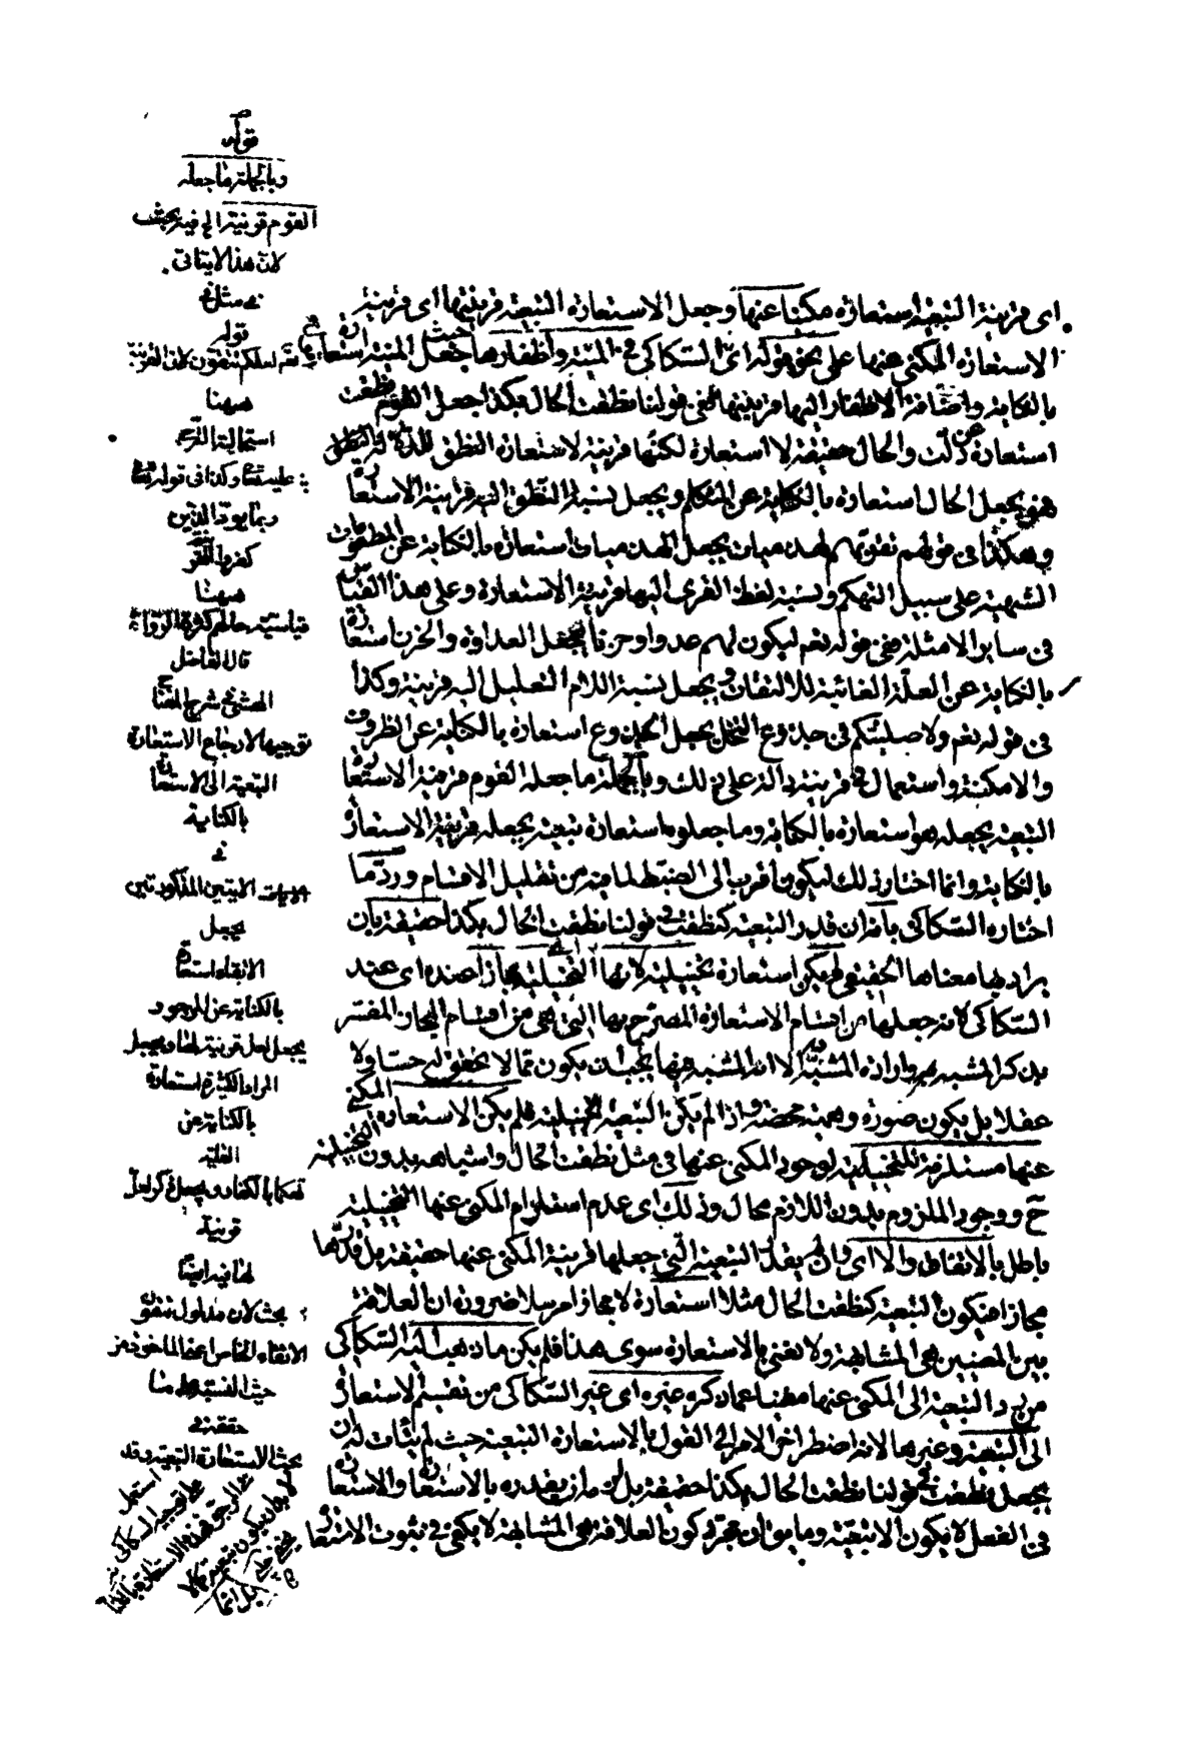 اى قرينة التبعية استعارة مكنيا عنها وجعل الاستعارة التبعية قرينتها اى قرينة
الاستعارة المكنى عنها على نحو قوله اى السكاكى فى المنية واظفارها حيث جعل المنية استعارة
بالكناية واضافة الاظفار اليها قرينتها ففى قولنا نطقت الحال بكذا جعل القوم نطقت
استعارة عن دلت والحال حقيقة لا استعارة لكنها قرينة لاستعارة النطق للدلالة
هو يجعل الحال استعارة بالكناية عن المتكلم ويجعل نسبة النطق اليه قرينة الاستعارة
وهكذا فى قولهم نقريهم لهذميات يجعل اللهذميات استعارة بالكناية عن المطعومات
الشهية على سبيل التهكم ونسبة لفظ القرى اليها قرينة الاستعارة وعلى هذا القياس
فى ساير الامثلة ففى قوله تعم ليكون لهم عدوا وحزنا يجعل العداوة والحزن استعارة
بالكناية عن العلة الغائية للالتقاط ويجعل نسبة اللام التعليل اليه قرينة وكذا
فى قوله تعم ولاصلبنكم فى جذوع النخل يجعل الجذوع استعارة بالكناية عن الظروف
والامكنة واستعمال فى قرينة دالة على ذلك وبالجملة ما جعله القوم قرينة الاستعارة
التبعية يجعله هو استعارة بالكناية وما جعلوه استعارة تبعية يجعله قرينة الاستعارة
بالكناية وانما اختار ذلك ليكون اقرب الى الضبط لما فيه من تقليل الاقسام ورد ما
اختاره السكاكى بانه ان قدر التبعية كنطقت فى قولنا نطقت الحال بكذا حقيقة بان
يراد بها معناها الحقيقى لم يكن استعارة تخييلية لانها اى التخييلية مجاز عنده اى عند
السكاكى لانه جعلها من اقسام الاستعارة المصرح بها التى هى من اقسام المجاز المفسر
بذكر المشبه به وارادة المشبه الا ان المشبه فيها يجب ان يكون مما لا تحقق له حسا ولا
عقلا بل يكون صورة وهمية محضة واذا لم يكن التبعية تخييلية فلم يكن الاستعارة المكنى
عنها مستلزمة للتخييلية لوجود المكنى عنها فى مثل نطقت الحال واشباهه بدون التخييلية
ح ووجود الملزوم بدون اللازم محال وذلك اى عدم استلزام المكنى عنها التخييلية
باطل بالاتفاق والا اى وان لم يقدر التبعية التى جعلها قرينة المكنى عنها حقيقة بل قدرها
مجازا فيكون التبعية كنطقت الحال مثلا استعارة لا مجازا مرسلا ضرورة ان العلاقة
بين المعنيين هى المشابهة ولا نعنى بالاستعارة سوى هذا فلم يكن ما ذهب اليه السكاكى
من رد التبعية الى المكنى عنها مغنيا عما ذكره غيره اى غير السكاكى من تقسيم الاستعارة
الى التبعية وغيرها لانه اضطر اخر الامر الى القول بالاستعارة التبعية حيث لم يتات له ان
يجعل نطقت فى قولنا نطقت الحال بكذا حقيقة بل لزمه ان يقدره بالاستعارة والاستعارة
فى الفعل لا يكون الا تبعية وما يقال ان مجرد كون العلاقة هى المشابهة لا يكفى فى ثبوت الاستعارة
قوله
وبالجملة ما جعله
القوم قرينة الخ فيه بحث
لان هذا لا يتاتى
فى مثل
قوله
ههنا
ربما يود الذين
كفروا
ههنا
قال الفاضل
المحشى فى شرح المفتاح
توجيها لارجاع الاستعارة
التبعية الى الاستعارة
بالكناية
فى
الايتين المذكورتين
يجعل
الاتقاء استعارة
بالكناية عن المرجو
يجعل لعل قرينة لها ويجعل
المراد الكثير استعارة
بالكناية عن
القلة
قرينة
لها فيه ايضا
بحث لان مدلول تتقون
حقيقة فى
بحث الاستعارة التبعية وقد